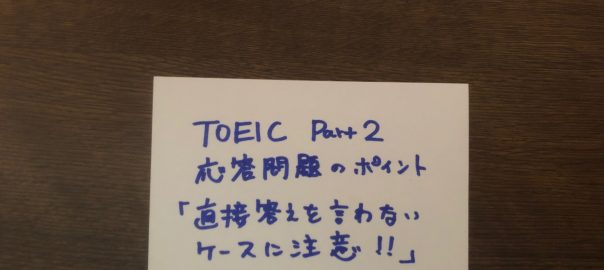 TOEIC Part 2
応答問題のポイント
「直接答えを言わない
ケースに注意!!」